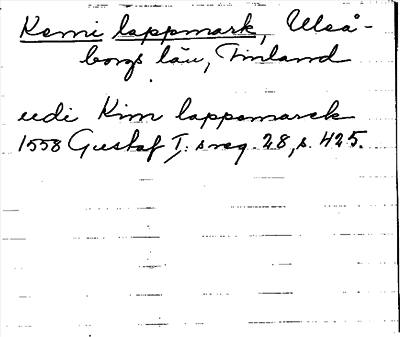 Kemi lappmark, Uleå-
borgs län, Finland
udi Kim lappamarck
1558 Gustaf I:s reg. 28, s. 425.